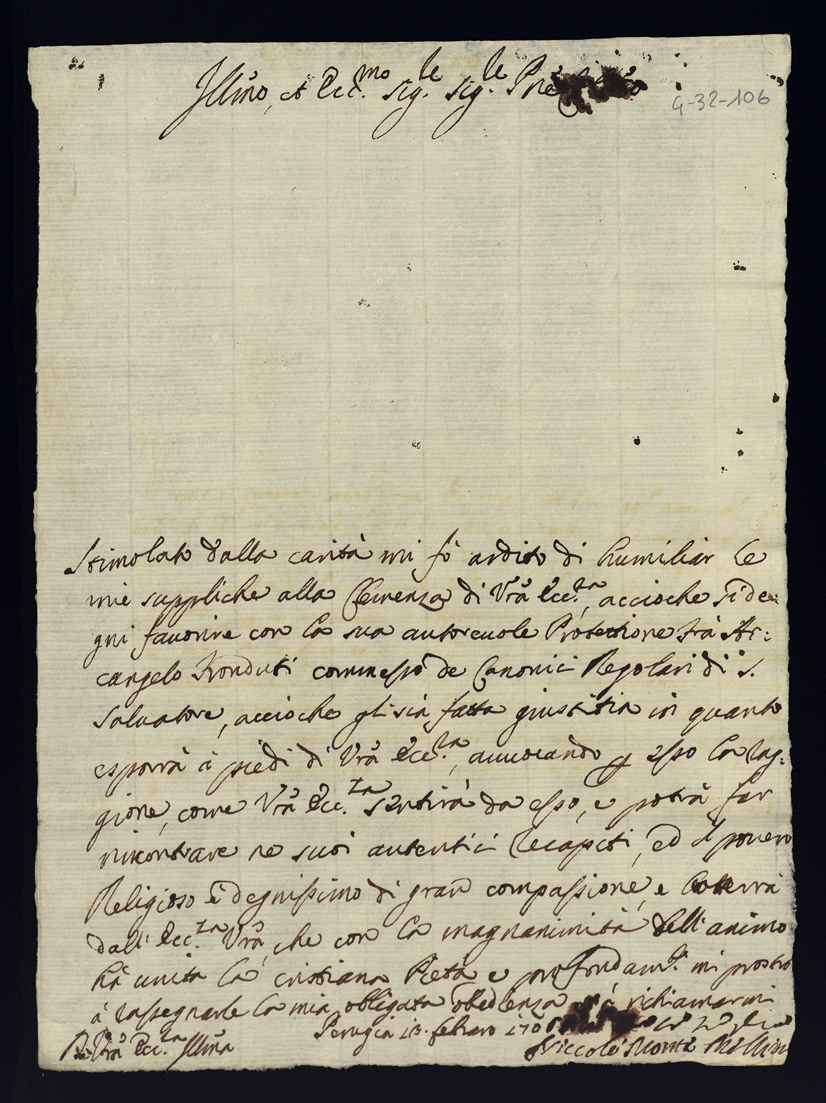 Illmo, et Ecc.mo Sig.le Sig.le Pne
9-32-106
Stimolato dalla carità mi fò ardito di humiliar le
mie suppliche alla Clemenza di Vrã Ecc.za, accioche si de:
gni favorire con la sua autoreuole Protettione Frà Ar:
cangelo Ronduti commesso de Canonici Regolari di S.
Salvatore, accioche gli sia fatta giustitia in quanto
esporrà à piedi di Vrã Ecc.za, auuocando p esso la rag:
gione, come Vrã Ecc.za sentirà da esso, e potrà far
rincontrare ne suoi autentici recapiti, ed il povero
Religioso è degnissimo di gran compassione, e l'otterrà
dall' Ecc.za Vrã, che con la magnanimità dell' animo
hà unita la cristiana Pietà e profondam.te mi prostro
à rassegnarle la mia obligata obedienza à richiamarmi
Perugia 13. febraro 170
Di Vrã Ecc.za Illma
Niccolò Monti